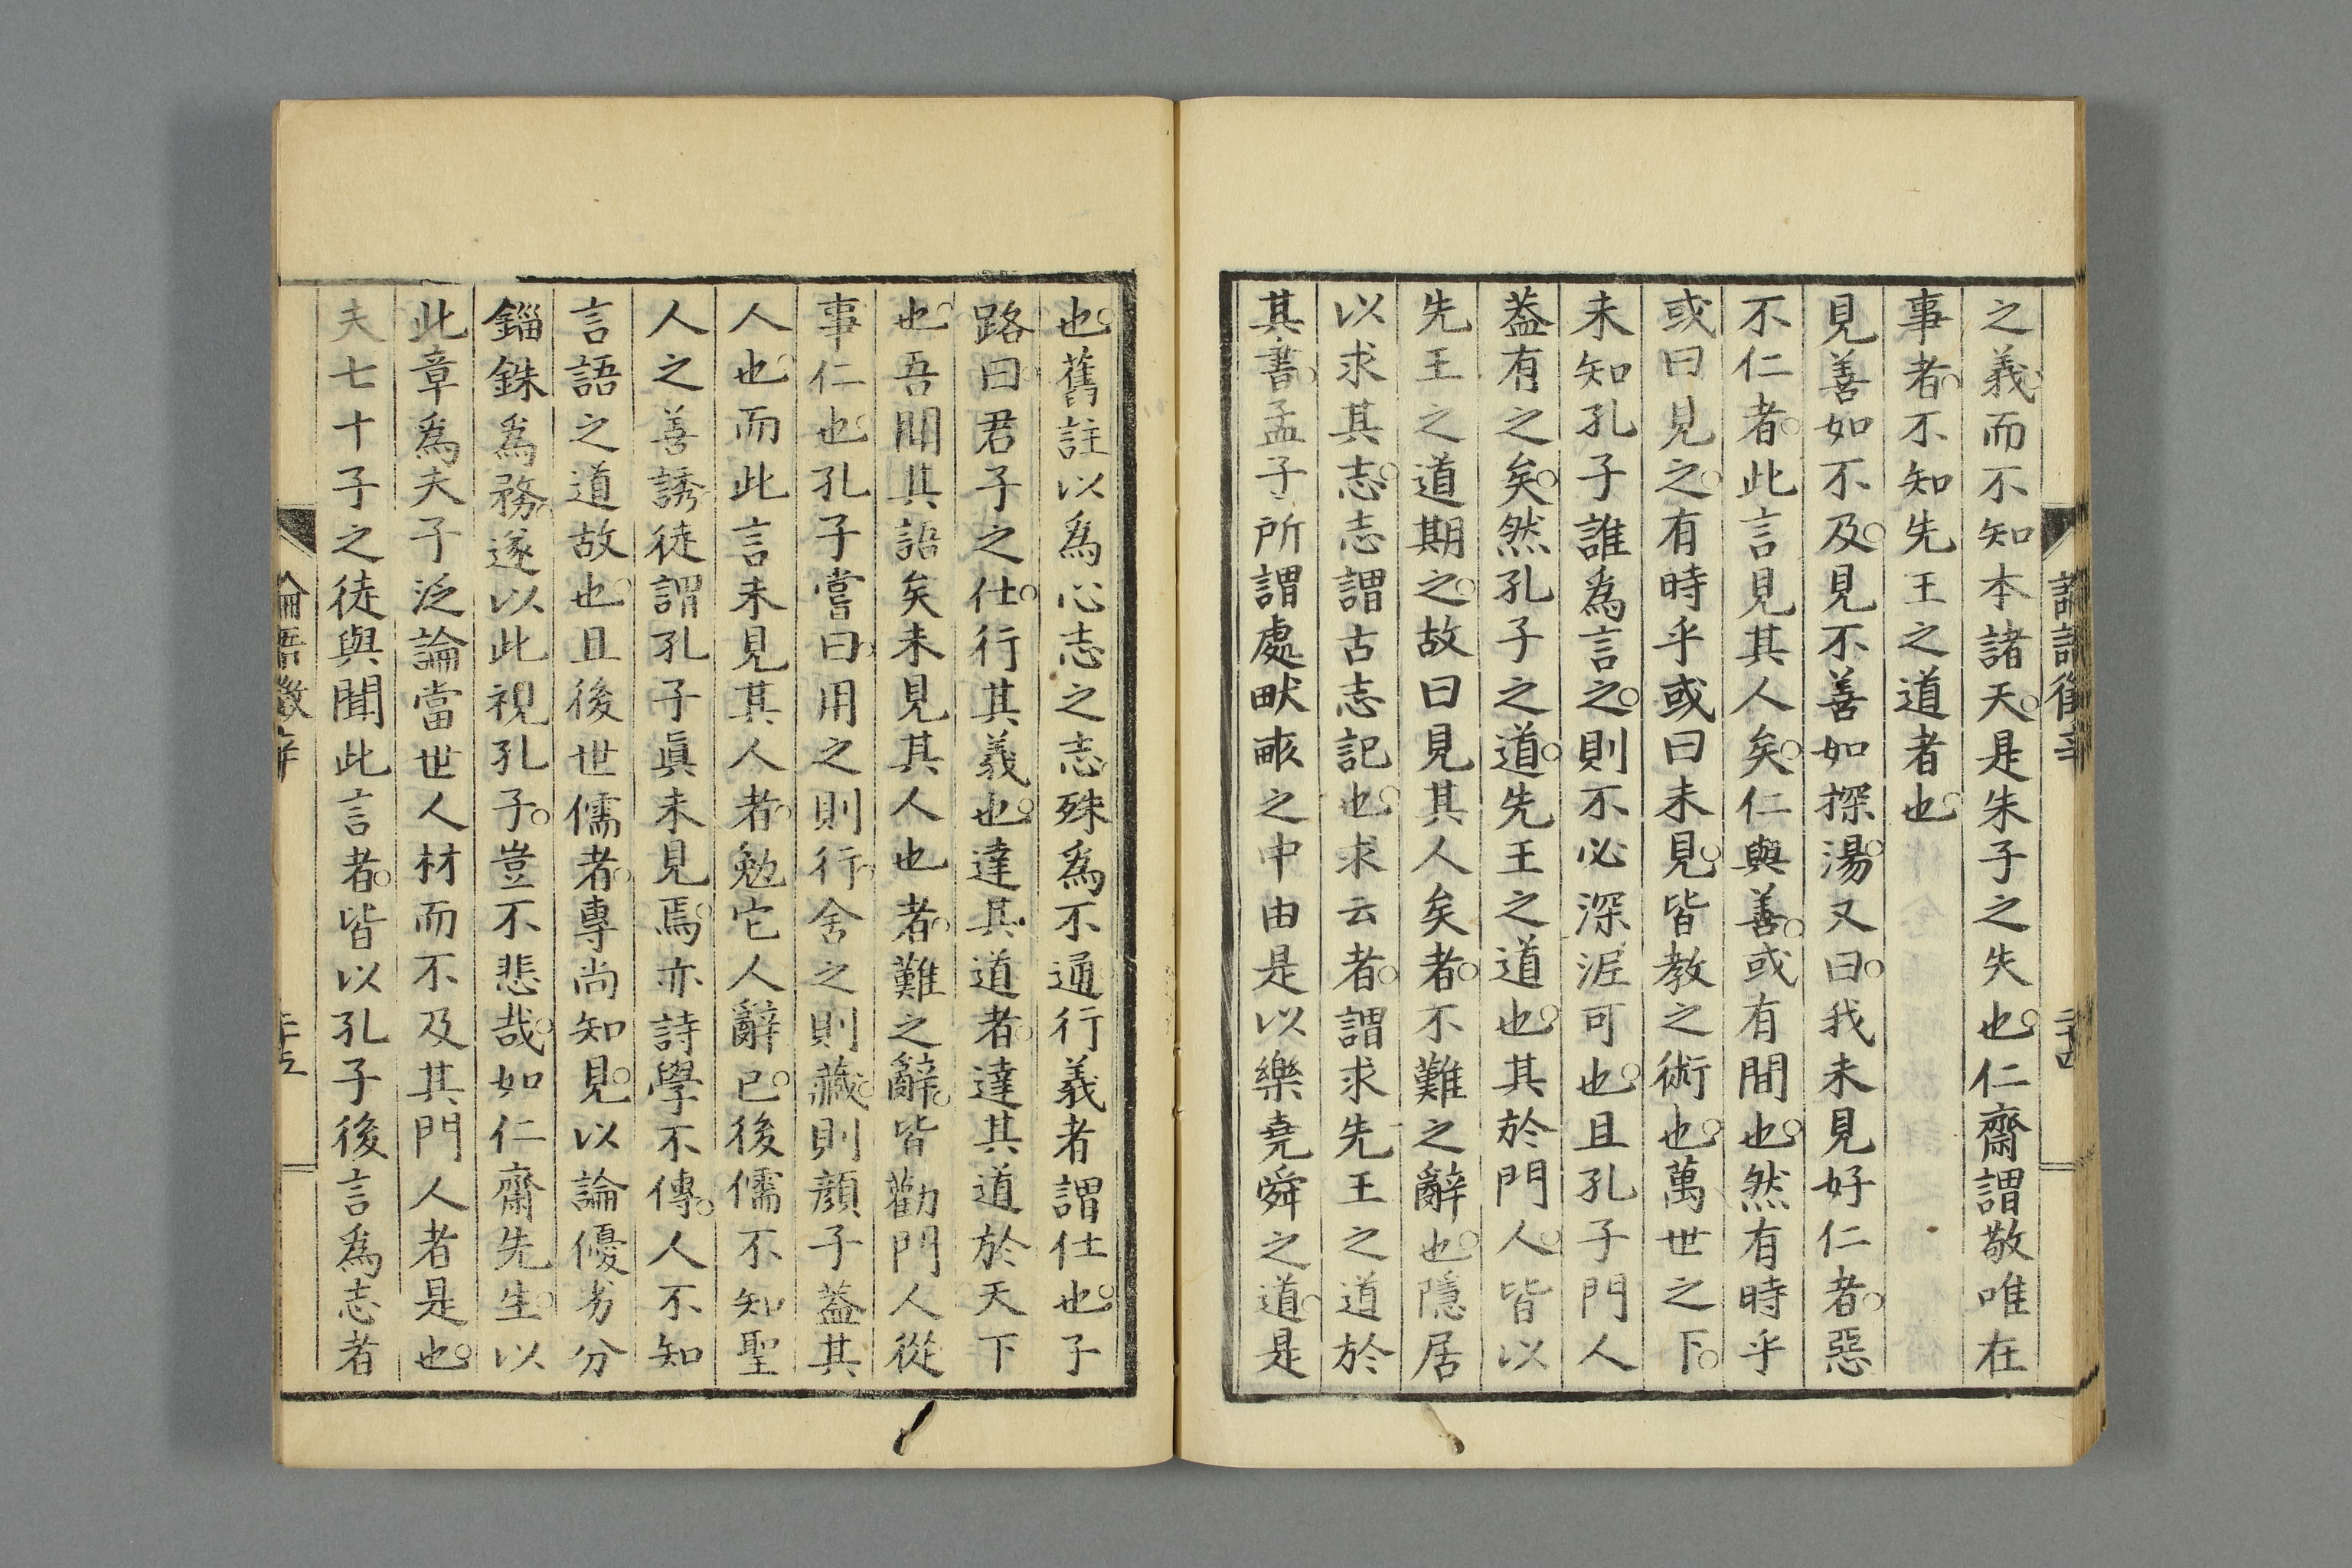 之義而不知本諸天是朱子之失也仁齋謂敬唯在
事者不知先王之道者也
見善如不及見不善如探湯又曰我未見好仁者惡
不仁者此言見其人矣仁與善或有間也然有時乎
或曰見之有時乎或曰未見皆教之術也萬世之下
未知孔子誰爲言之則不必深泥可也且孔子門人
葢有之矣然孔子之道先王之道也其於門人皆以
先王之道期之故曰見其人矣者不難之辭也隱居
以求其志志謂古志記也求云者謂求先王之道於
其書孟子所謂處畎畞之中由是以樂堯舜之道是
也舊註以爲心志之志殊爲不通行義者謂仕也子
路曰君子之仕行其義也達其道者達其道於天下
也吾聞其語矣未見其人也者難之辭皆勸門人從
事仁也也孔子嘗曰用之則行舍之則藏則顏子葢其
人也而此言未見其人者勉它人辭已後儒不知聖
人之善誘徒謂孔子眞未見焉亦詩學不傳人不知
言語之道故也且後世儒者專尚知見以論優劣分
錙銖爲務遂以此視孔子豈不悲哉如仁齋先生以
此章爲夫子泛論當世人材而不及其門人者是也
夫七十子之徒與聞此言者皆以孔子後言爲志者
論語徵 二十五